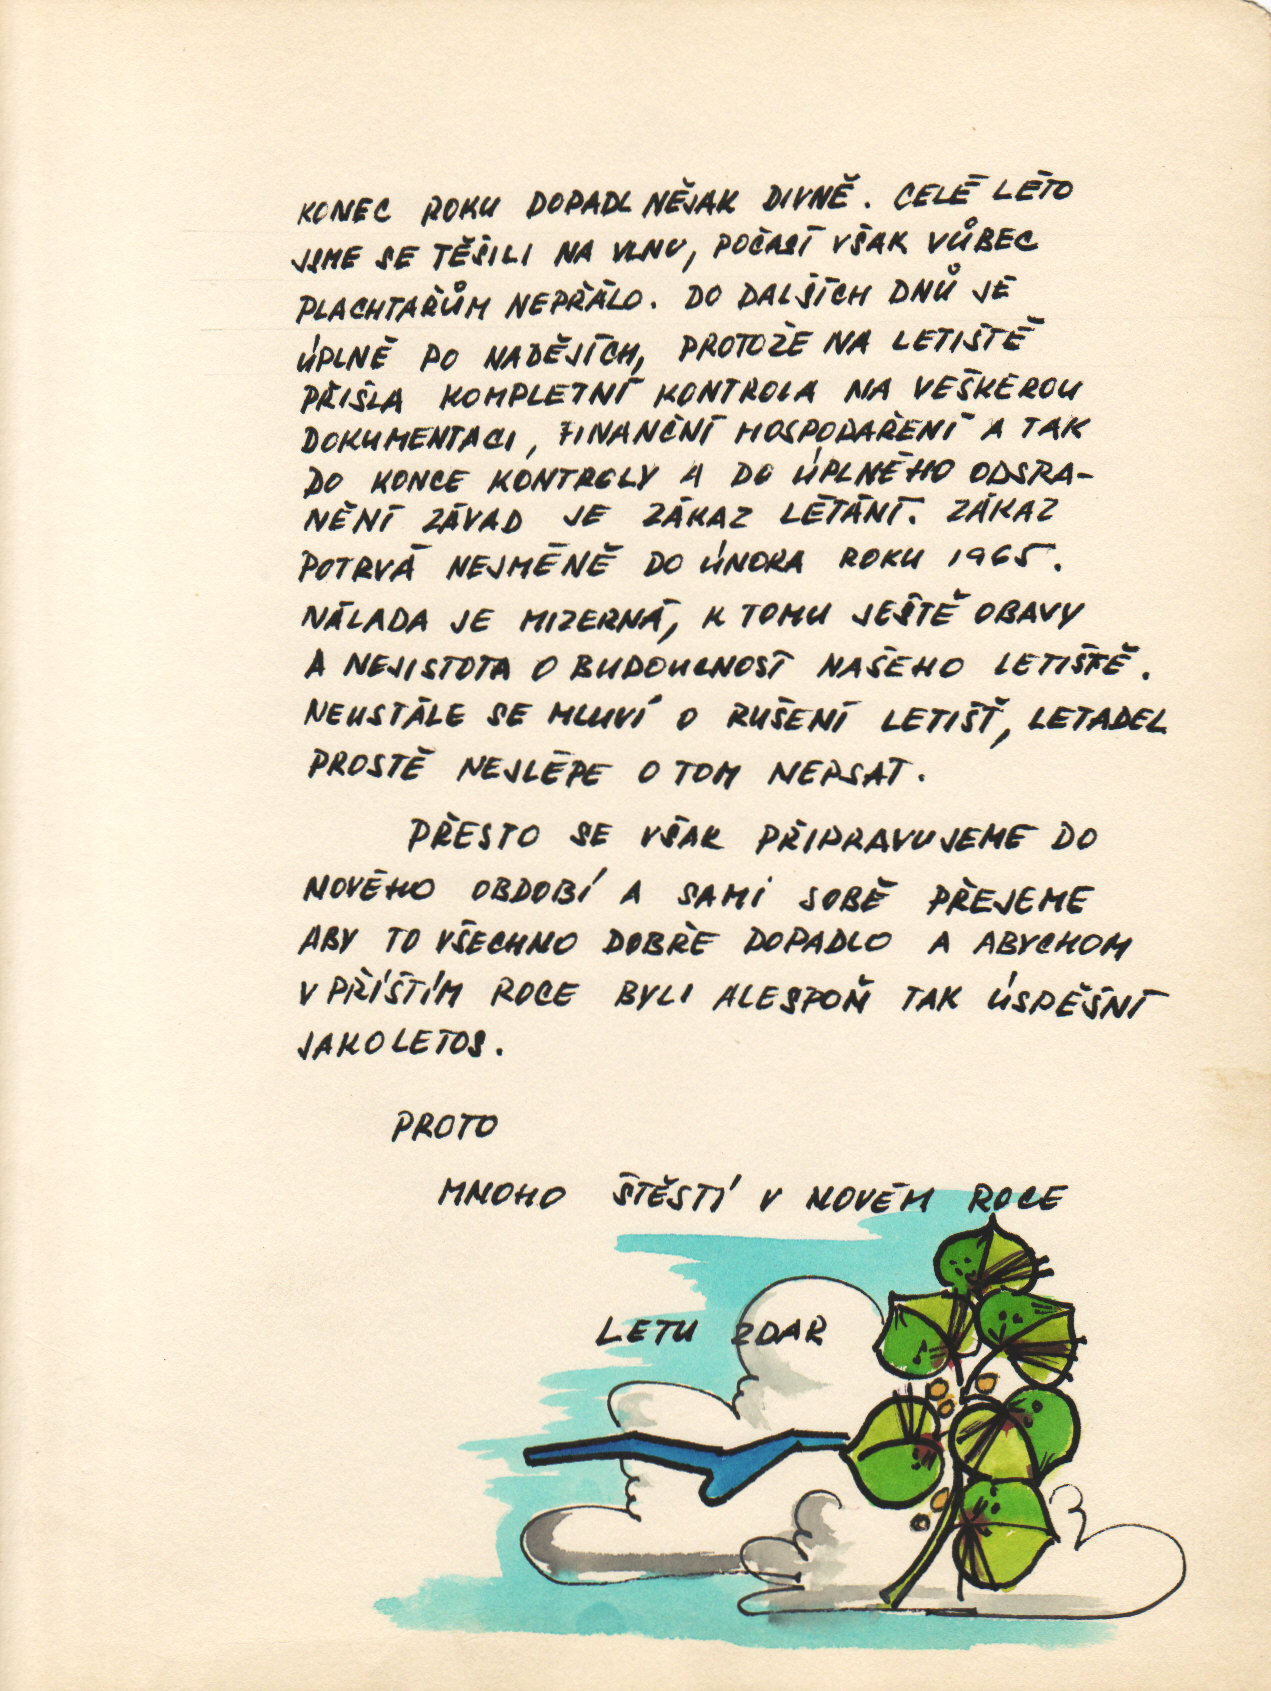 KONEC ROKU DOPADL NĚJAK DIVNĚ. CELÉ LÉTO
JSME SE TĚŠILI NA VLNU, POČASÍ VŠAK VŮBEC
PLACHTAŘŮM NEPŘÁLO. DO DALŠÍCH DNŮ JE
ÚPLNĚ PO NADĚJÍCH, PROTOŽE NA LETIŠTĚ
PŘIŠLA KOMPLETNÍ KONTROLA NA VEŠKEROU
DOKUMENTACI, FINANČNÍ HOSPODAŘENÍ A TAK
DO KONCE KONTROLY A DO ÚPLNÉHO ODSRA-
NĚNÍ ZÁVAD JE ZÁKAZ LÉTÁNÍ. ZÁKAZ
POTRVÁ NEJMÉNĚ DO ÚNORA ROKU 1965.
NÁLADA JE MIZERNÁ, K TOMU JEŠTĚ OBAVY
A NEJISTOTA O BUDOUCNOST NAŠEHO LETIŠTĚ.
NEUSTÁLE SE MLUVÍ O RUŠENÍ LETIŠŤ, LETADEL
PROSTĚ NEJLÉPE O TOM NEPSAT.
PŘESTO SE VŠAK PŘIPRAVUJEME DO
NOVÉHO OBDOBÍ A SAMI SOBĚ PŘEJEME
ABY TO VŠECHNO DOBŘE DOPADLO A ABYCHOM
V PŘÍŠTÍM ROCE BYLI ALESPOŇ TAK ÚSPĚŠNÍ
JAKO LETOS.
PROTO
MNOHO ŠTĚSTÍ V NOVÉM ROCE
LETU ZDAR